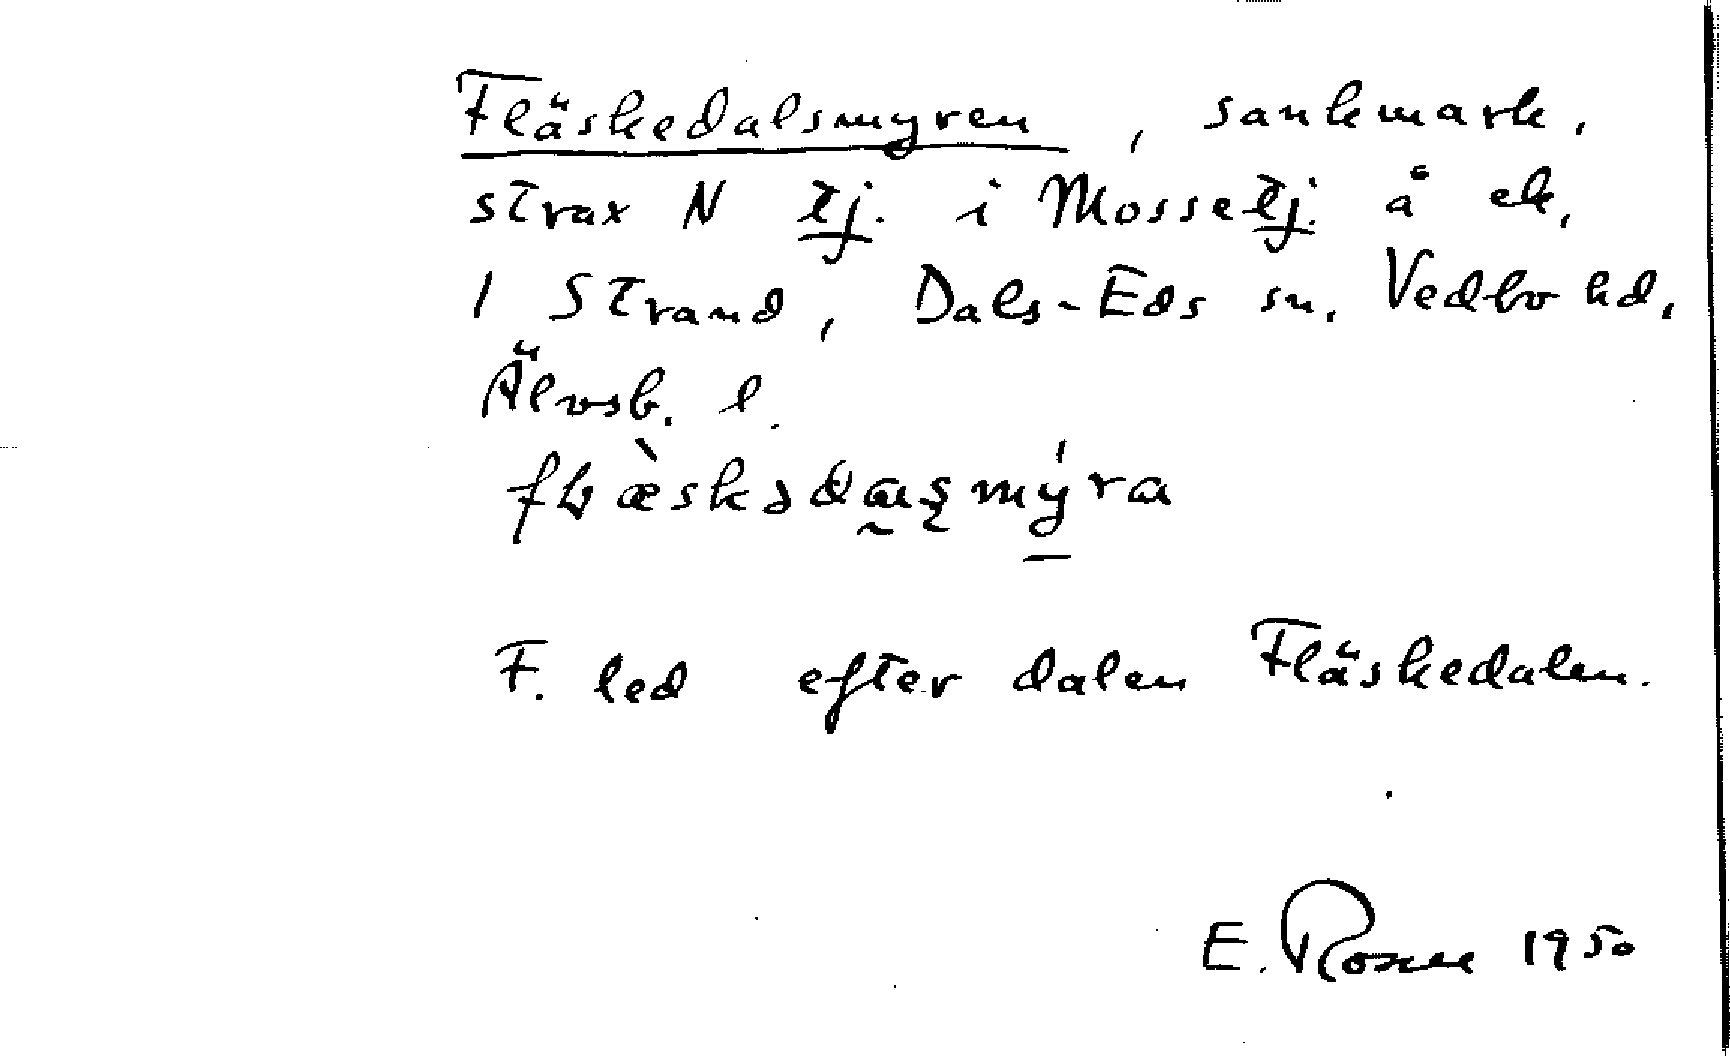 Fläskedalsmyren, sankmark,
strax N tj. i Mossetj. å ek.
1 Strand, Dals-Eds sn. Vedbo hd,
Älvsb. l.
F. led efter dalen Fläskedalen.
E. 1950